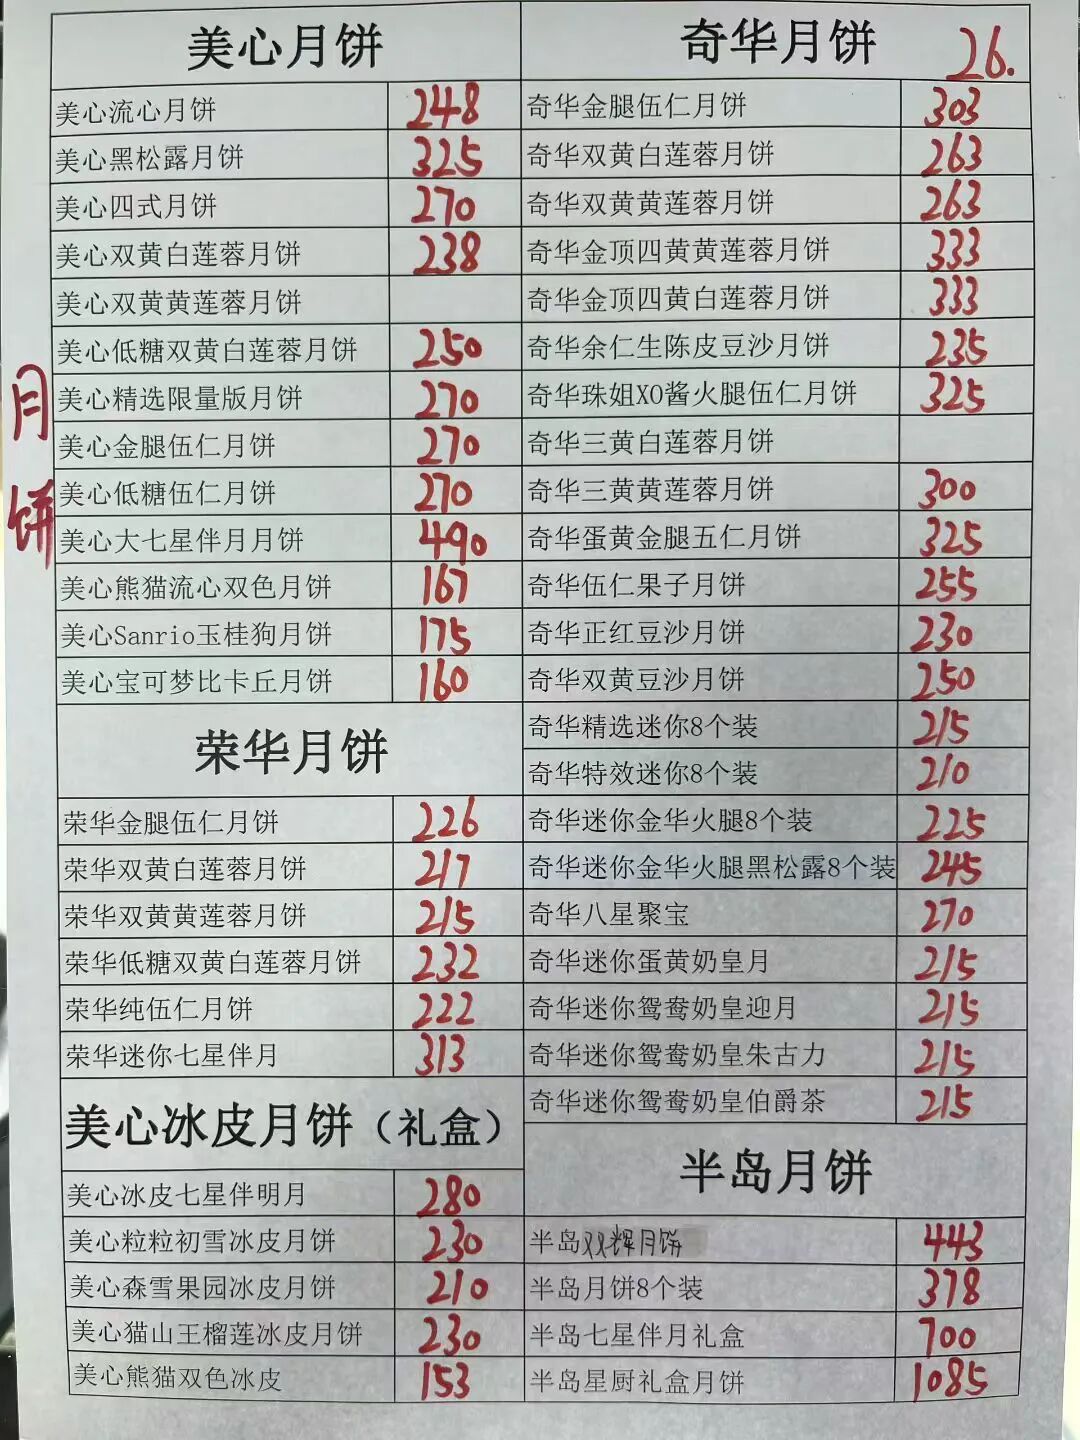 月饼
美心月饼
美心流心月饼 248
美心黑松露月饼 325
美心四式月饼 270
美心双黄白莲蓉月饼 238
美心双黄黄莲蓉月饼
美心低糖双黄白莲蓉月饼 250
美心精选限量版月饼 270
美心金腿伍仁月饼 270
美心低糖伍仁月饼 270
美心大七星伴月月饼 490
美心熊猫流心双色月饼 167
美心Sanrio玉桂狗月饼 175
美心宝可梦比卡丘月饼 160
荣华月饼
荣华金腿伍仁月饼 226
荣华双黄白莲蓉月饼 217
荣华双黄黄莲蓉月饼 215
荣华低糖双黄白莲蓉月饼 232
荣华纯伍仁月饼 222
荣华迷你七星伴月 313
美心冰皮月饼（礼盒）
美心冰皮七星伴明月 280
美心粒粒初雪冰皮月饼 230
美心森雪果园冰皮月饼 210
美心猫山王榴莲冰皮月饼 230
美心熊猫双色冰皮 153
奇华月饼 26.
奇华金腿伍仁月饼 303
奇华双黄白莲蓉月饼 263
奇华双黄黄莲蓉月饼 263
奇华金顶四黄黄莲蓉月饼 333
奇华金顶四黄白莲蓉月饼 333
奇华余仁生陈皮豆沙月饼 235
奇华珠姐XO酱火腿伍仁月饼 325
奇华三黄白莲蓉月饼
奇华三黄黄莲蓉月饼 300
奇华蛋黄金腿五仁月饼 325
奇华伍仁果子月饼 255
奇华正红豆沙月饼 230
奇华双黄豆沙月饼 250
奇华精选迷你8个装 215
奇华特效迷你8个装 210
奇华迷你金华火腿8个装 225
奇华迷你金华火腿黑松露8个装 245
奇华八星聚宝 270
奇华迷你蛋黄奶皇月 215
奇华迷你鸳鸯奶皇迎月 215
奇华迷你鸳鸯奶皇朱古力 215
奇华迷你鸳鸯奶皇伯爵茶 215
半岛月饼
半岛双辉月饼 443
半岛月饼8个装 378
半岛七星伴月礼盒 700
半岛星厨礼盒月饼 1085